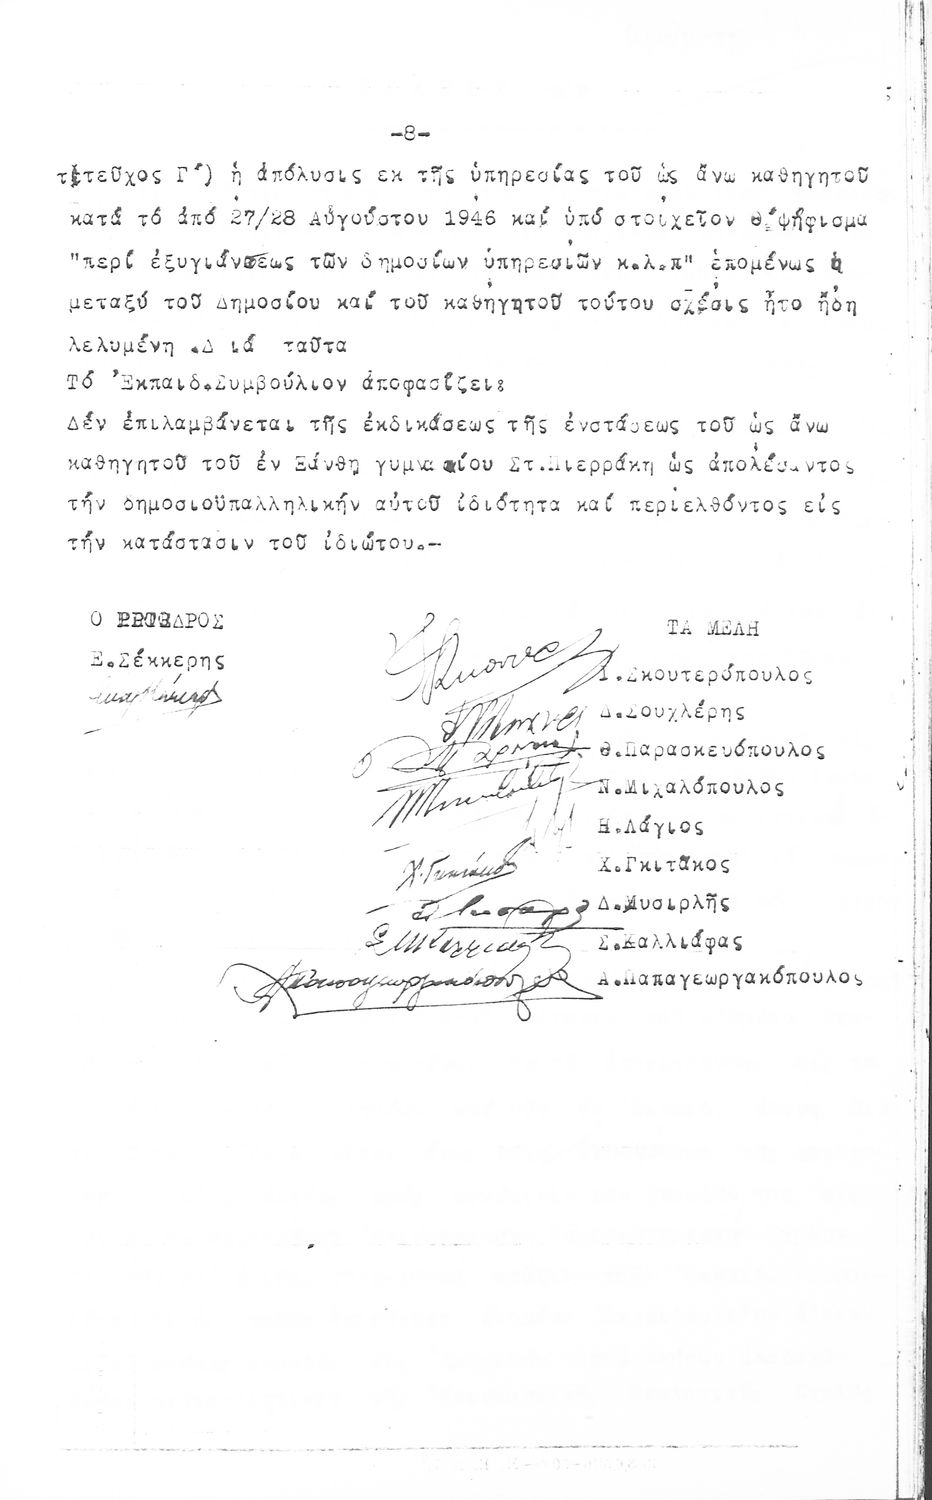 -8-
τ(τεῦχος Γ΄) ἡ ἀπόλυσις εκ τῆς ὑπηρεσίας τοῦ ὡς ἄνω καθηγητοῦ
κατά τό ἀπό 27/28 Αὐγούστου 1946 καί ὑπό στοιχεῖον Θ΄ψήφισμα
"περί ἐξυγιάνσεως τῶν δημοσίων ὑπηρεσιῶν κ.λ.π" ἑπομένως ἡ
μεταξύ τοῦ Δημοσίου καί τοῦ καθηγητοῦ τούτου σχέσις ἦτο ἤδη
λελυμένη .Διά ταῦτα
Τό Ἐκπαιδ.Συμβούλιον ἀποφασίζει:
Δέν ἐπιλαμβάνεται τῆς ἐκδικάσεως τῆς ἐνστάσεως τοῦ ὡς ἄνω
καθηγητοῦ τοῦ ἐν Ξάνθῃ γυμνασίου Στ.Πιερράκη ὡς ἀπολέσαντος
τήν δημοσιοϋπαλληλικήν αὐτοῦ ἰδιότητα καί περιελθόντος εἰς
τήν κατάστασιν τοῦ ἰδιώτου.-
Ο ΠΡΟΕΔΡΟΣ
Ε.Σέκκερης
ΤΑ ΜΕΛΗ
.Σκουτερόπουλος
Δ.Σουχλέρης
Θ.Παρασκευόπουλος
Ν.Μιχαλόπουλος
Η.Λάγιος
Χ.Γκιτάκος
Δ.Μυσιρλῆς
Σ.Καλλιάφας
Α.Παπαγεωργακόπουλος
Χ.Γκιτάκος